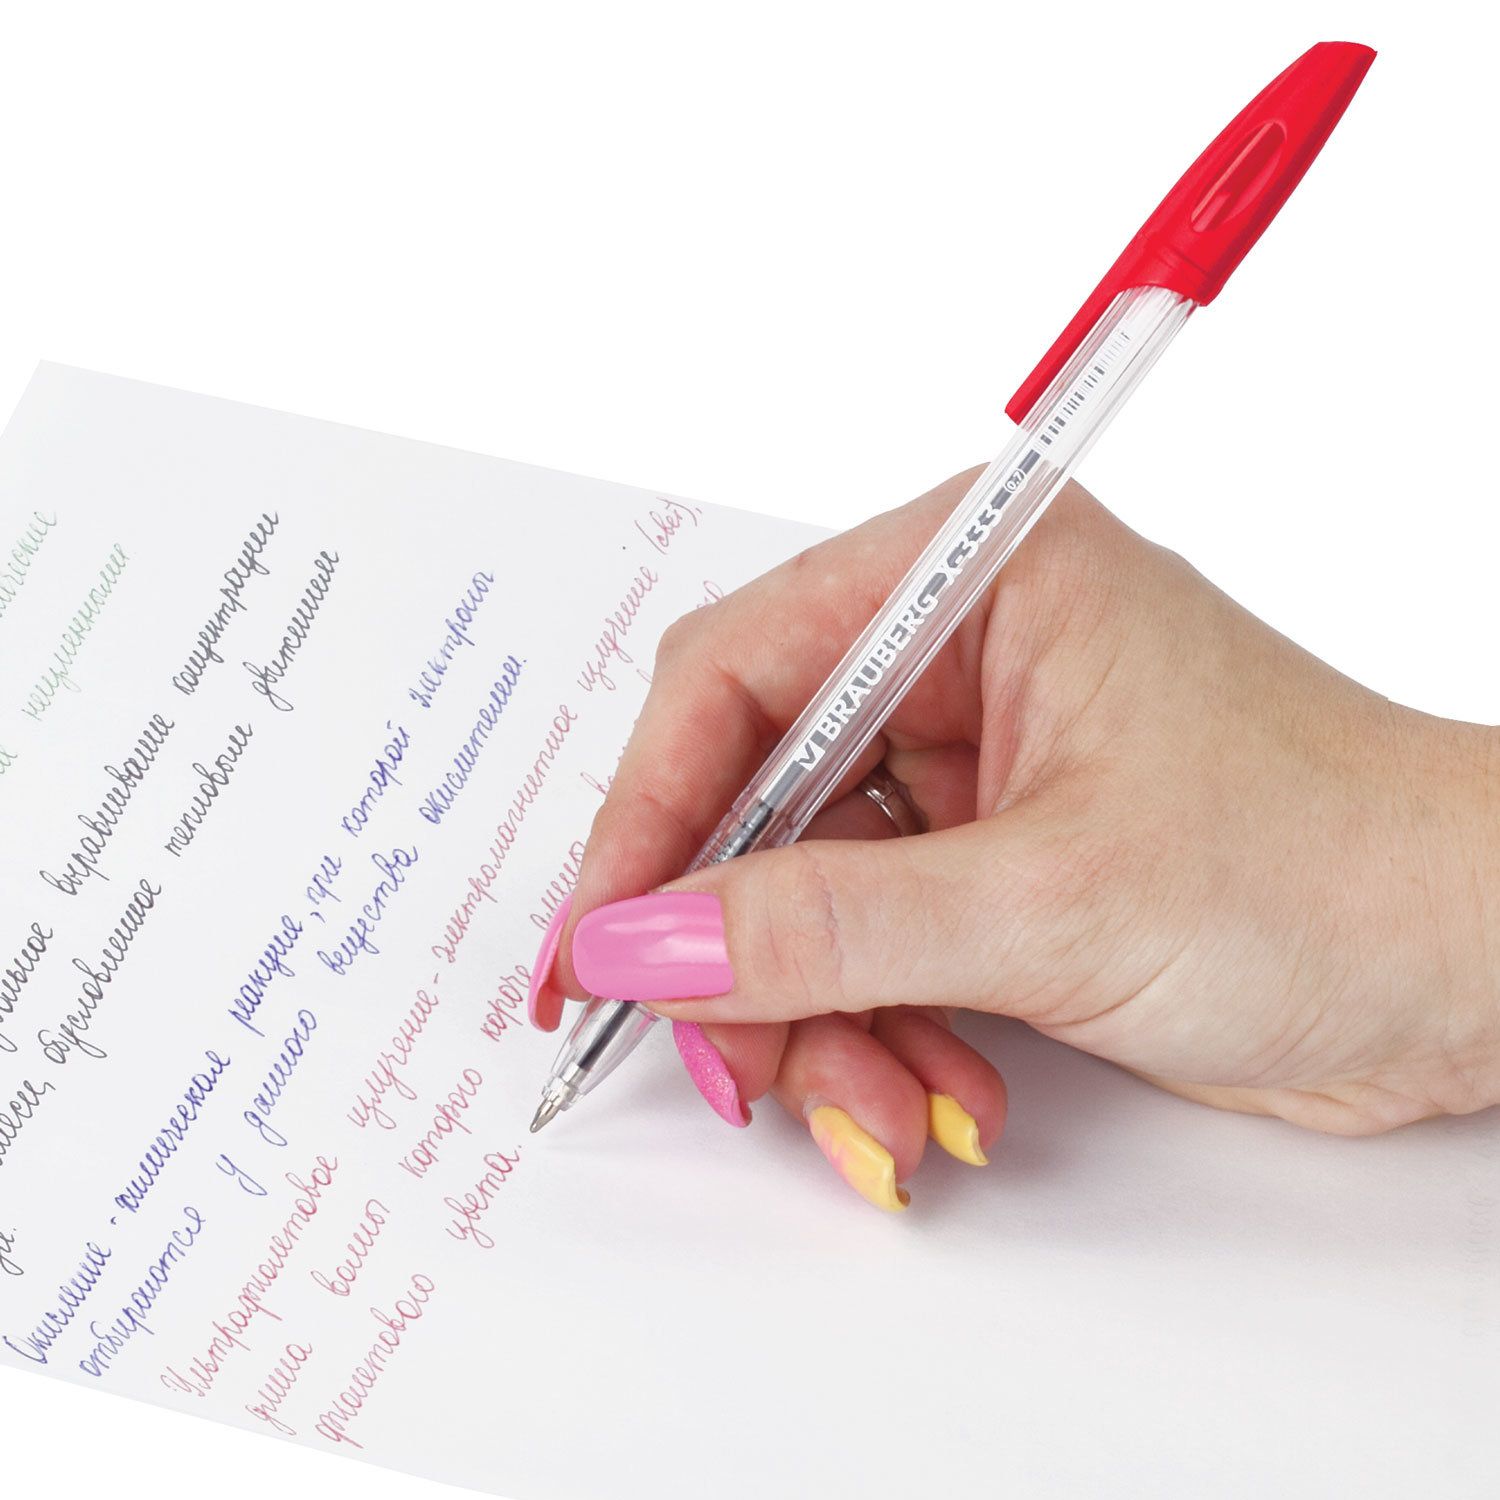 нические
неизменными.
выравнивание концентрации
обусловленное тепловым движением
Окисление - химическая реакция, при которой электроны
отбираются у данного вещества окислителем.
Ультрафиолетовое излучение - электромагнитное излучение (свет),
длина волны которого короче длины
фиолетового цвета.
BRAUBERG X-333 0.7